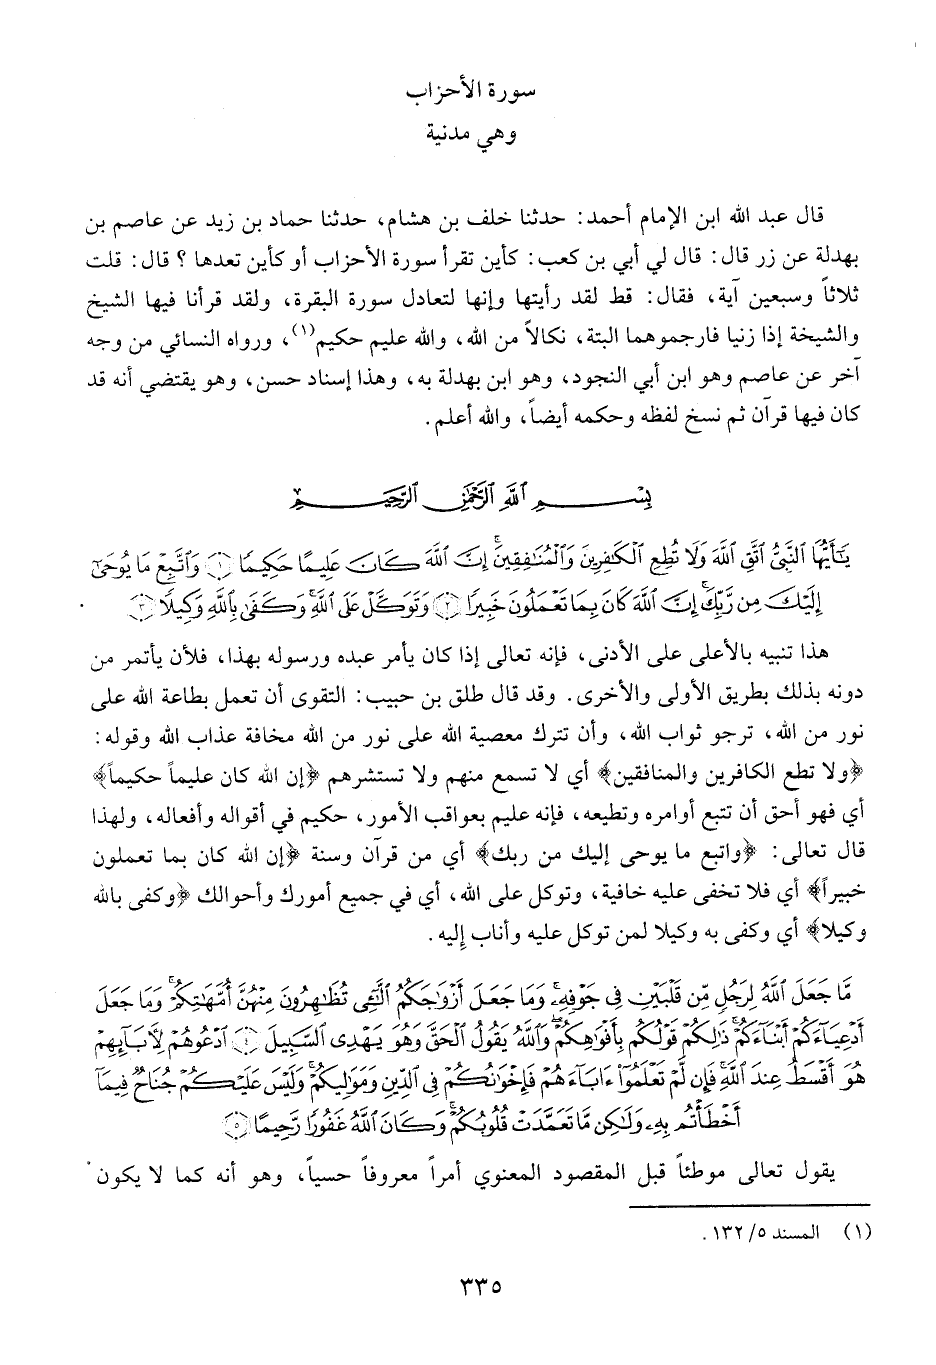 سورة الأحزاب
وهي مدنية
قال عبد الله ابن الإمام أحمد: حدثنا خلف بن هشام، حدثنا حماد بن زيد عن عاصم بن
بهدلة عن زر قال: قال لي أبي بن كعب: كأين تقرأ سورة الأحزاب أو كأين تعدها؟ قال: قلت
ثلاثاً وسبعين آية، فقال: قط لقد رأيتها وإنها لتعادل سورة البقرة، ولقد قرأنا فيها الشيخ
والشيخة إذا زنيا فارجموهما البتة، نكالاً من الله، والله عليم حكيم(١)، ورواه النسائي من وجه
آخر عن عاصم وهو ابن أبي النجود، وهو ابن بهدلة به، وهذا إسناد حسن، وهو يقتضي أنه قد
كان فيها قرآن ثم نسخ لفظه وحكمه أيضاً، والله أعلم.
بِسْمِ اللَّهِ الرَّحْمَٰنِ الرَّحِيمِ
يَٰٓأَيُّهَا ٱلنَّبِىُّ ٱتَّقِ ٱللَّهَ وَلَا تُطِعِ ٱلْكَٰفِرِينَ وَٱلْمُنَٰفِقِينَ ۗ إِنَّ ٱللَّهَ كَانَ عَلِيمًا حَكِيمًا (١) وَٱتَّبِعْ مَا يُوحَىٰٓ
إِلَيْكَ مِن رَّبِّكَ ۚ إِنَّ ٱللَّهَ كَانَ بِمَا تَعْمَلُونَ خَبِيرًا (٢) وَتَوَكَّلْ عَلَى ٱللَّهِ ۚ وَكَفَىٰ بِٱللَّهِ وَكِيلًا (٣)
هذا تنبيه بالأعلى على الأدنى، فإنه تعالى إذا كان يأمر عبده ورسوله بهذا، فلأن يأتمر من
دونه بذلك بطريق الأولى والأخرى. وقد قال طلق بن حبيب: التقوى أن تعمل بطاعة الله على
نور من الله، ترجو ثواب الله، وأن تترك معصية الله على نور من الله مخافة عذاب الله وقوله:
﴿ولا تطع الكافرين والمنافقين﴾ أي لا تسمع منهم ولا تستشرهم ﴿إن الله كان عليماً حكيماً﴾
أي فهو أحق أن تتبع أوامره وتطيعه، فإنه عليم بعواقب الأمور، حكيم في أقواله وأفعاله، ولهذا
قال تعالى: ﴿واتبع ما يوحى إليك من ربك﴾ أي من قرآن وسنة ﴿إن الله كان بما تعملون
خبيراً﴾ أي فلا تخفى عليه خافية، وتوكل على الله، أي في جميع أمورك وأحوالك ﴿وكفى بالله
وكيلا﴾ أي وكفى به وكيلا لمن توكل عليه وأناب إليه.
مَّا جَعَلَ ٱللَّهُ لِرَجُلٍ مِّن قَلْبَيْنِ فِى جَوْفِهِۦ ۚ وَمَا جَعَلَ أَزْوَٰجَكُمُ ٱلَّٰٓـِٔى تُظَٰهِرُونَ مِنْهُنَّ أُمَّهَٰتِكُمْ ۚ وَمَا جَعَلَ
أَدْعِيَآءَكُمْ أَبْنَآءَكُمْ ۚ ذَٰلِكُمْ قَوْلُكُم بِأَفْوَٰهِكُمْ ۖ وَٱللَّهُ يَقُولُ ٱلْحَقَّ وَهُوَ يَهْدِى ٱلسَّبِيلَ (٤) ٱدْعُوهُمْ لِءَابَآئِهِمْ
هُوَ أَقْسَطُ عِندَ ٱللَّهِ ۚ فَإِن لَّمْ تَعْلَمُوٓا۟ ءَابَآءَهُمْ فَإِخْوَٰنُكُمْ فِى ٱلدِّينِ وَمَوَٰلِيكُمْ ۚ وَلَيْسَ عَلَيْكُمْ جُنَاحٌ فِيمَآ
أَخْطَأْتُم بِهِۦ وَلَٰكِن مَّا تَعَمَّدَتْ قُلُوبُكُمْ ۚ وَكَانَ ٱللَّهُ غَفُورًا رَّحِيمًا (٥)
يقول تعالى موطئاً قبل المقصود المعنوي أمراً معروفاً حسياً، وهو أنه كما لا يكون
(١) المسند ٥/ ١٣٢.
٣٣٥